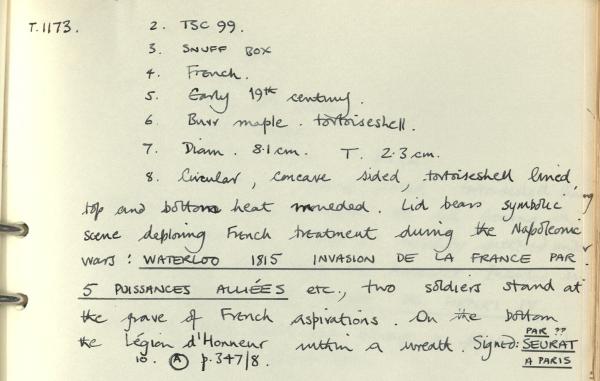 T.1173. 2. TSC 99.
3. SNUFF BOX
4. French.
5. Early 19th century.
6. Burr maple. tortoiseshell.
7. Diam. 8.1cm. T. 2.3cm.
8. Circular, concave sided, tortoiseshell lined,
top and bottom heat moueded. Lid bears symbolic
scene deploring French treatment during the Napoleonic
wars: WATERLOO 1815 INVASION DE LA FRANCE PAR
5 PUISSANCES ALLIÉES etc., two soldiers stand at
the grave of French aspirations. On the bottom
the Légion d'Honneur within a wreath. Signed: PAR ?? SEURAT A PARIS
10. A p.347/8.